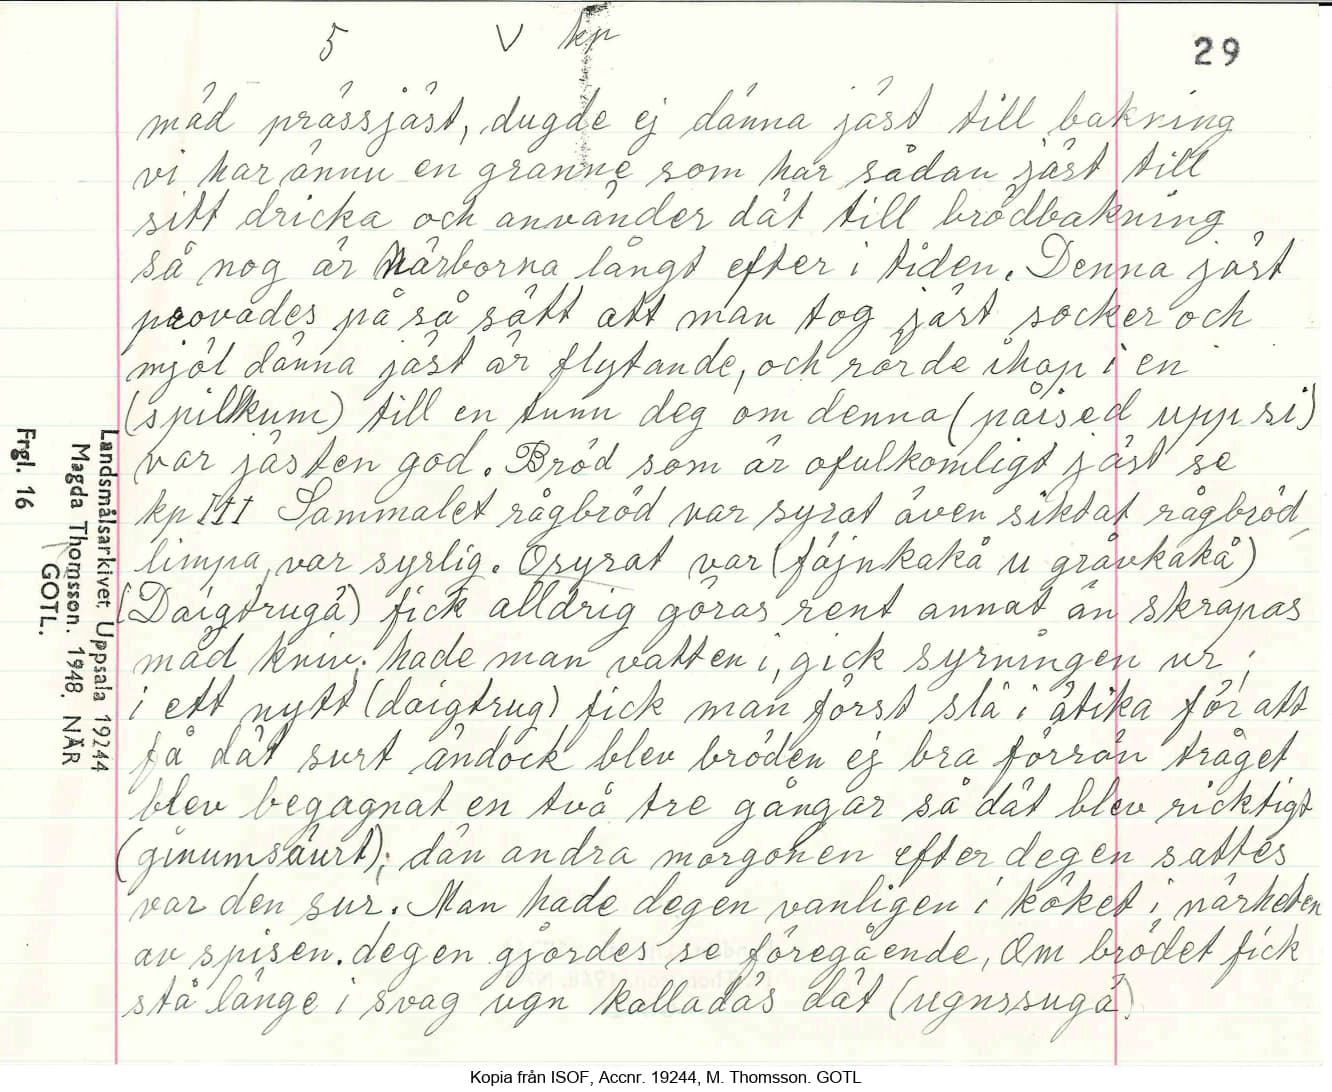 5 V kp
29
mäd prässjäst, dugde ej dänna jäst till bakning
vi har ännu en granne som har sådan jäst till
sitt dricka och använder dät till brödbakning
så nog är Närborna långt efter i tiden. Denna jäst
provades på så sätt att man tog jäst socker och
mjöl dänna jäst är flytande, och rörde ihop i en
(spillkum) till en tunn deg om denna (påised upp si)
var jästen god. Bröd som är ofulkomligt jäst se
kp III Sammalet rågbröd var syrat även siktat rågbröd
limpa, var syrlig. Osyrat var (fäjnkakå u gråvkakå)
(Daigtrugä) fick alldrig göras rent annat än skrapas
mäd kniv; hade man vatten i, gick syrningen ur;
i ett nytt (daigtrug) fick man först slå i ätika för att
få dät surt ändock blev bröden ej bra förrän tråget
blev begagnat en två tre gångar så dät blev ricktigt
(ginumsäurt); dän andra morgonen efter degen sattes
var den sur. Man hade degen vanligen i köket i närheten
av spisen. degen gjordes se föregående, Om brödet fick
stå länge i svag ugn kalladäs dät (ugnssugä)
Landsmålsarkivet, Uppsala 19244
Magda Thomsson. 1948. NÄR
GOTL.
Frgl. 16
Kopia från ISOF, Accnr. 19244, M. Thomsson. GOTL